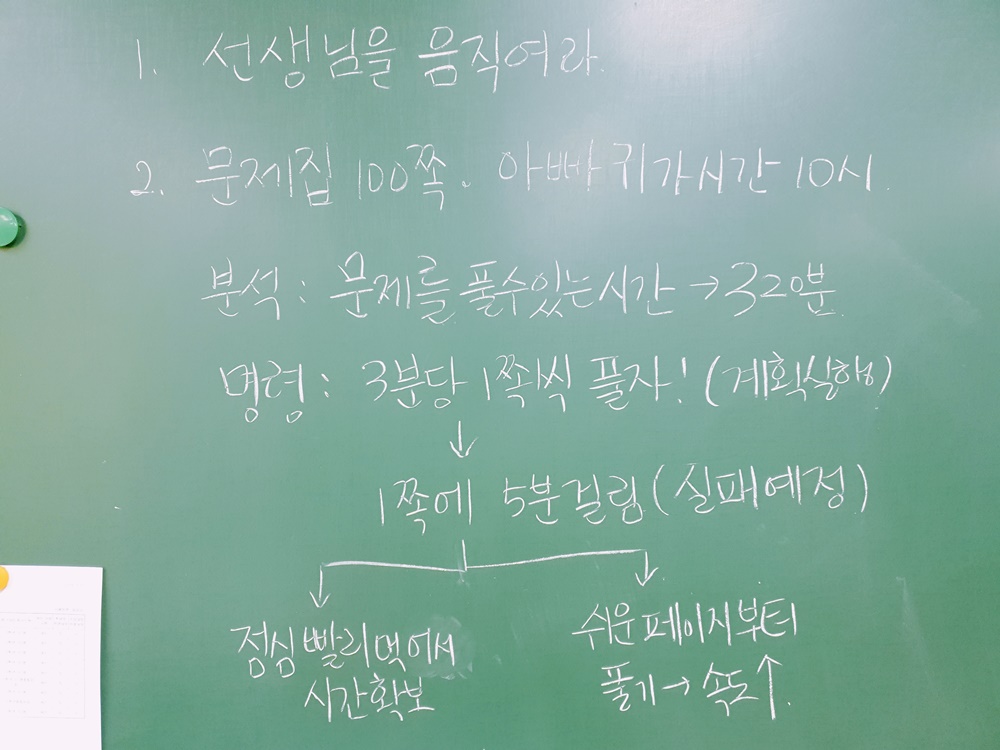 1. 선생님을 움직여라.
2. 문제집 100쪽. 아빠 귀가시간 10시.
분석 : 문제를 풀수있는시간 → 320분.
명령 : 3분당 1쪽씩 풀자! (계획실행)
↓
1쪽에 5분걸림 (실패예정)
점심 빨리먹어서
시간확보
쉬운페이지부터
풀기 → 속도↑.